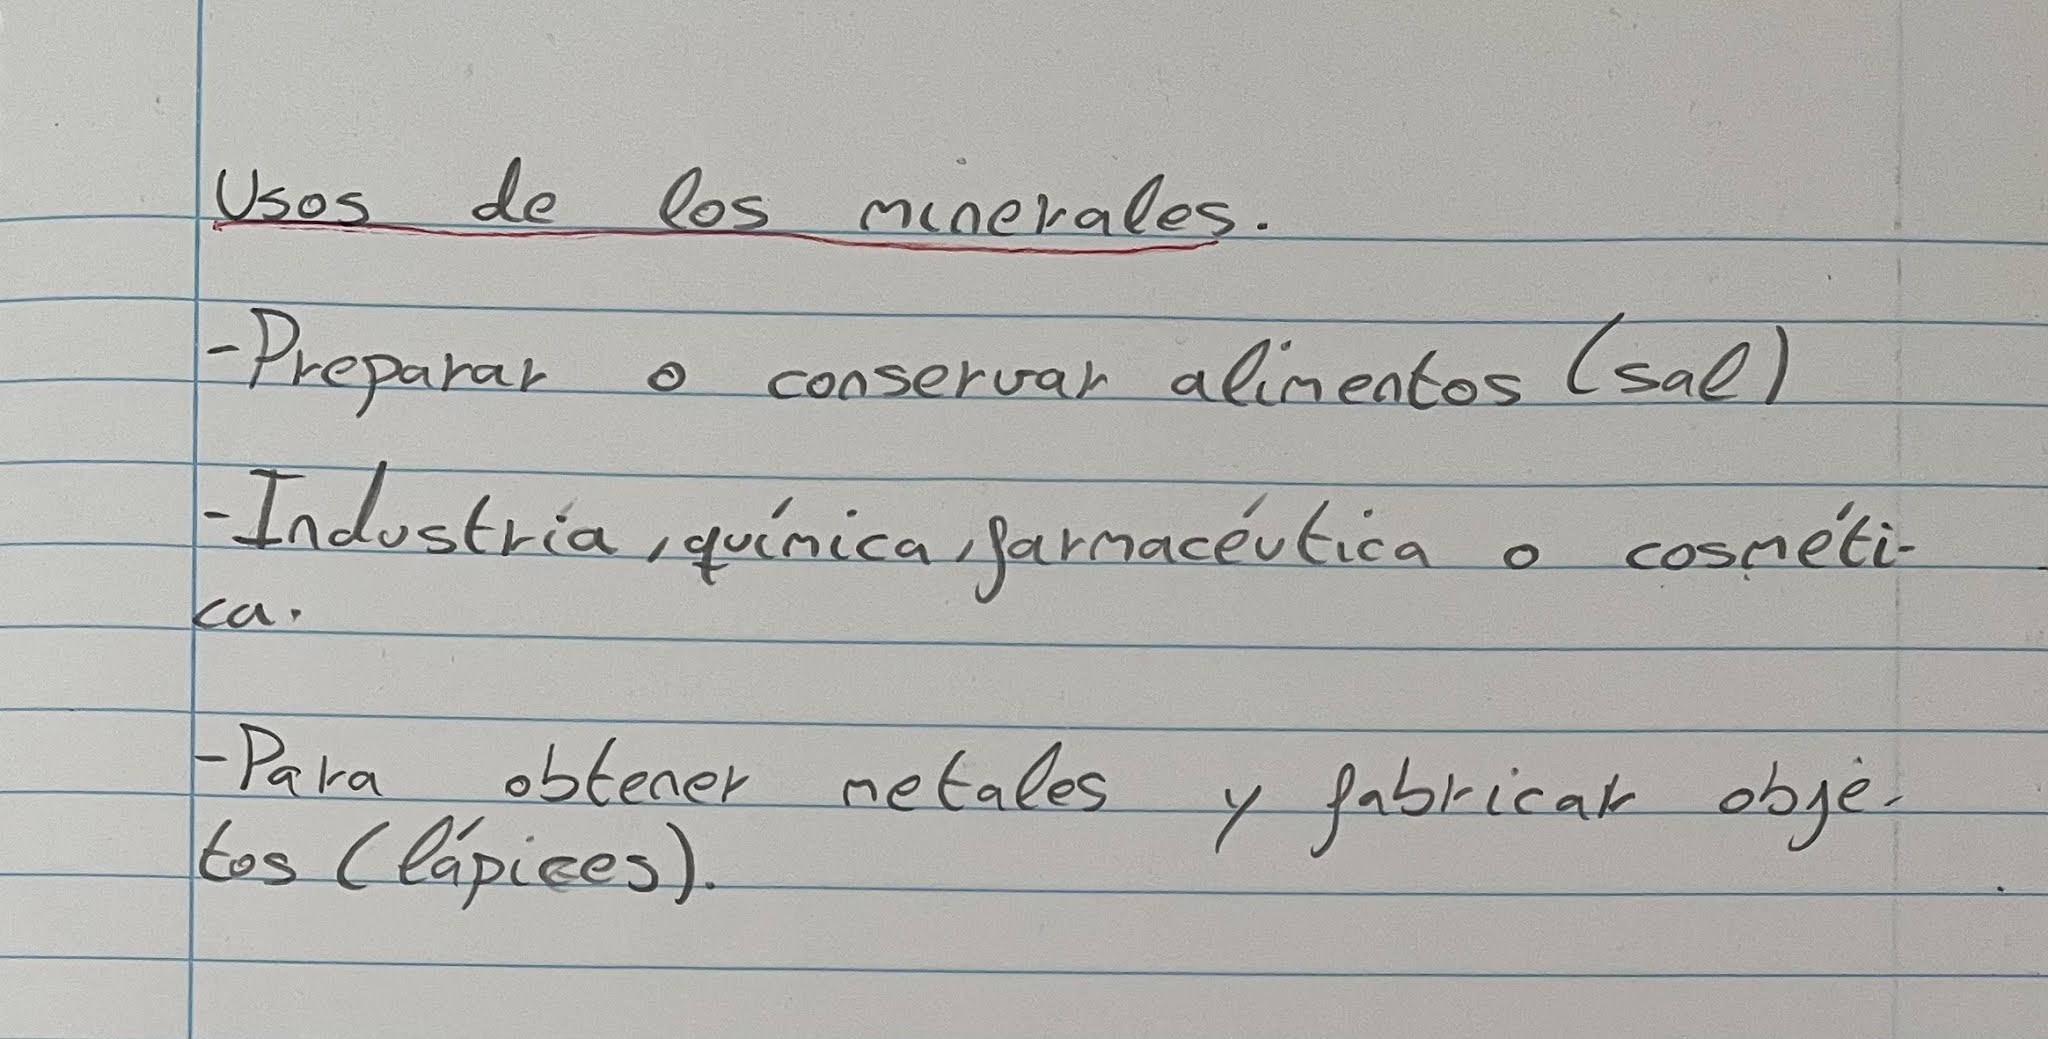 Usos de los minerales.
-Preparar o conservar alimentos (sal)
-Industria, química, farmacéutica o cosméti-
ca.
-Para obtener metales y fabricar obje-
tos (lápices).